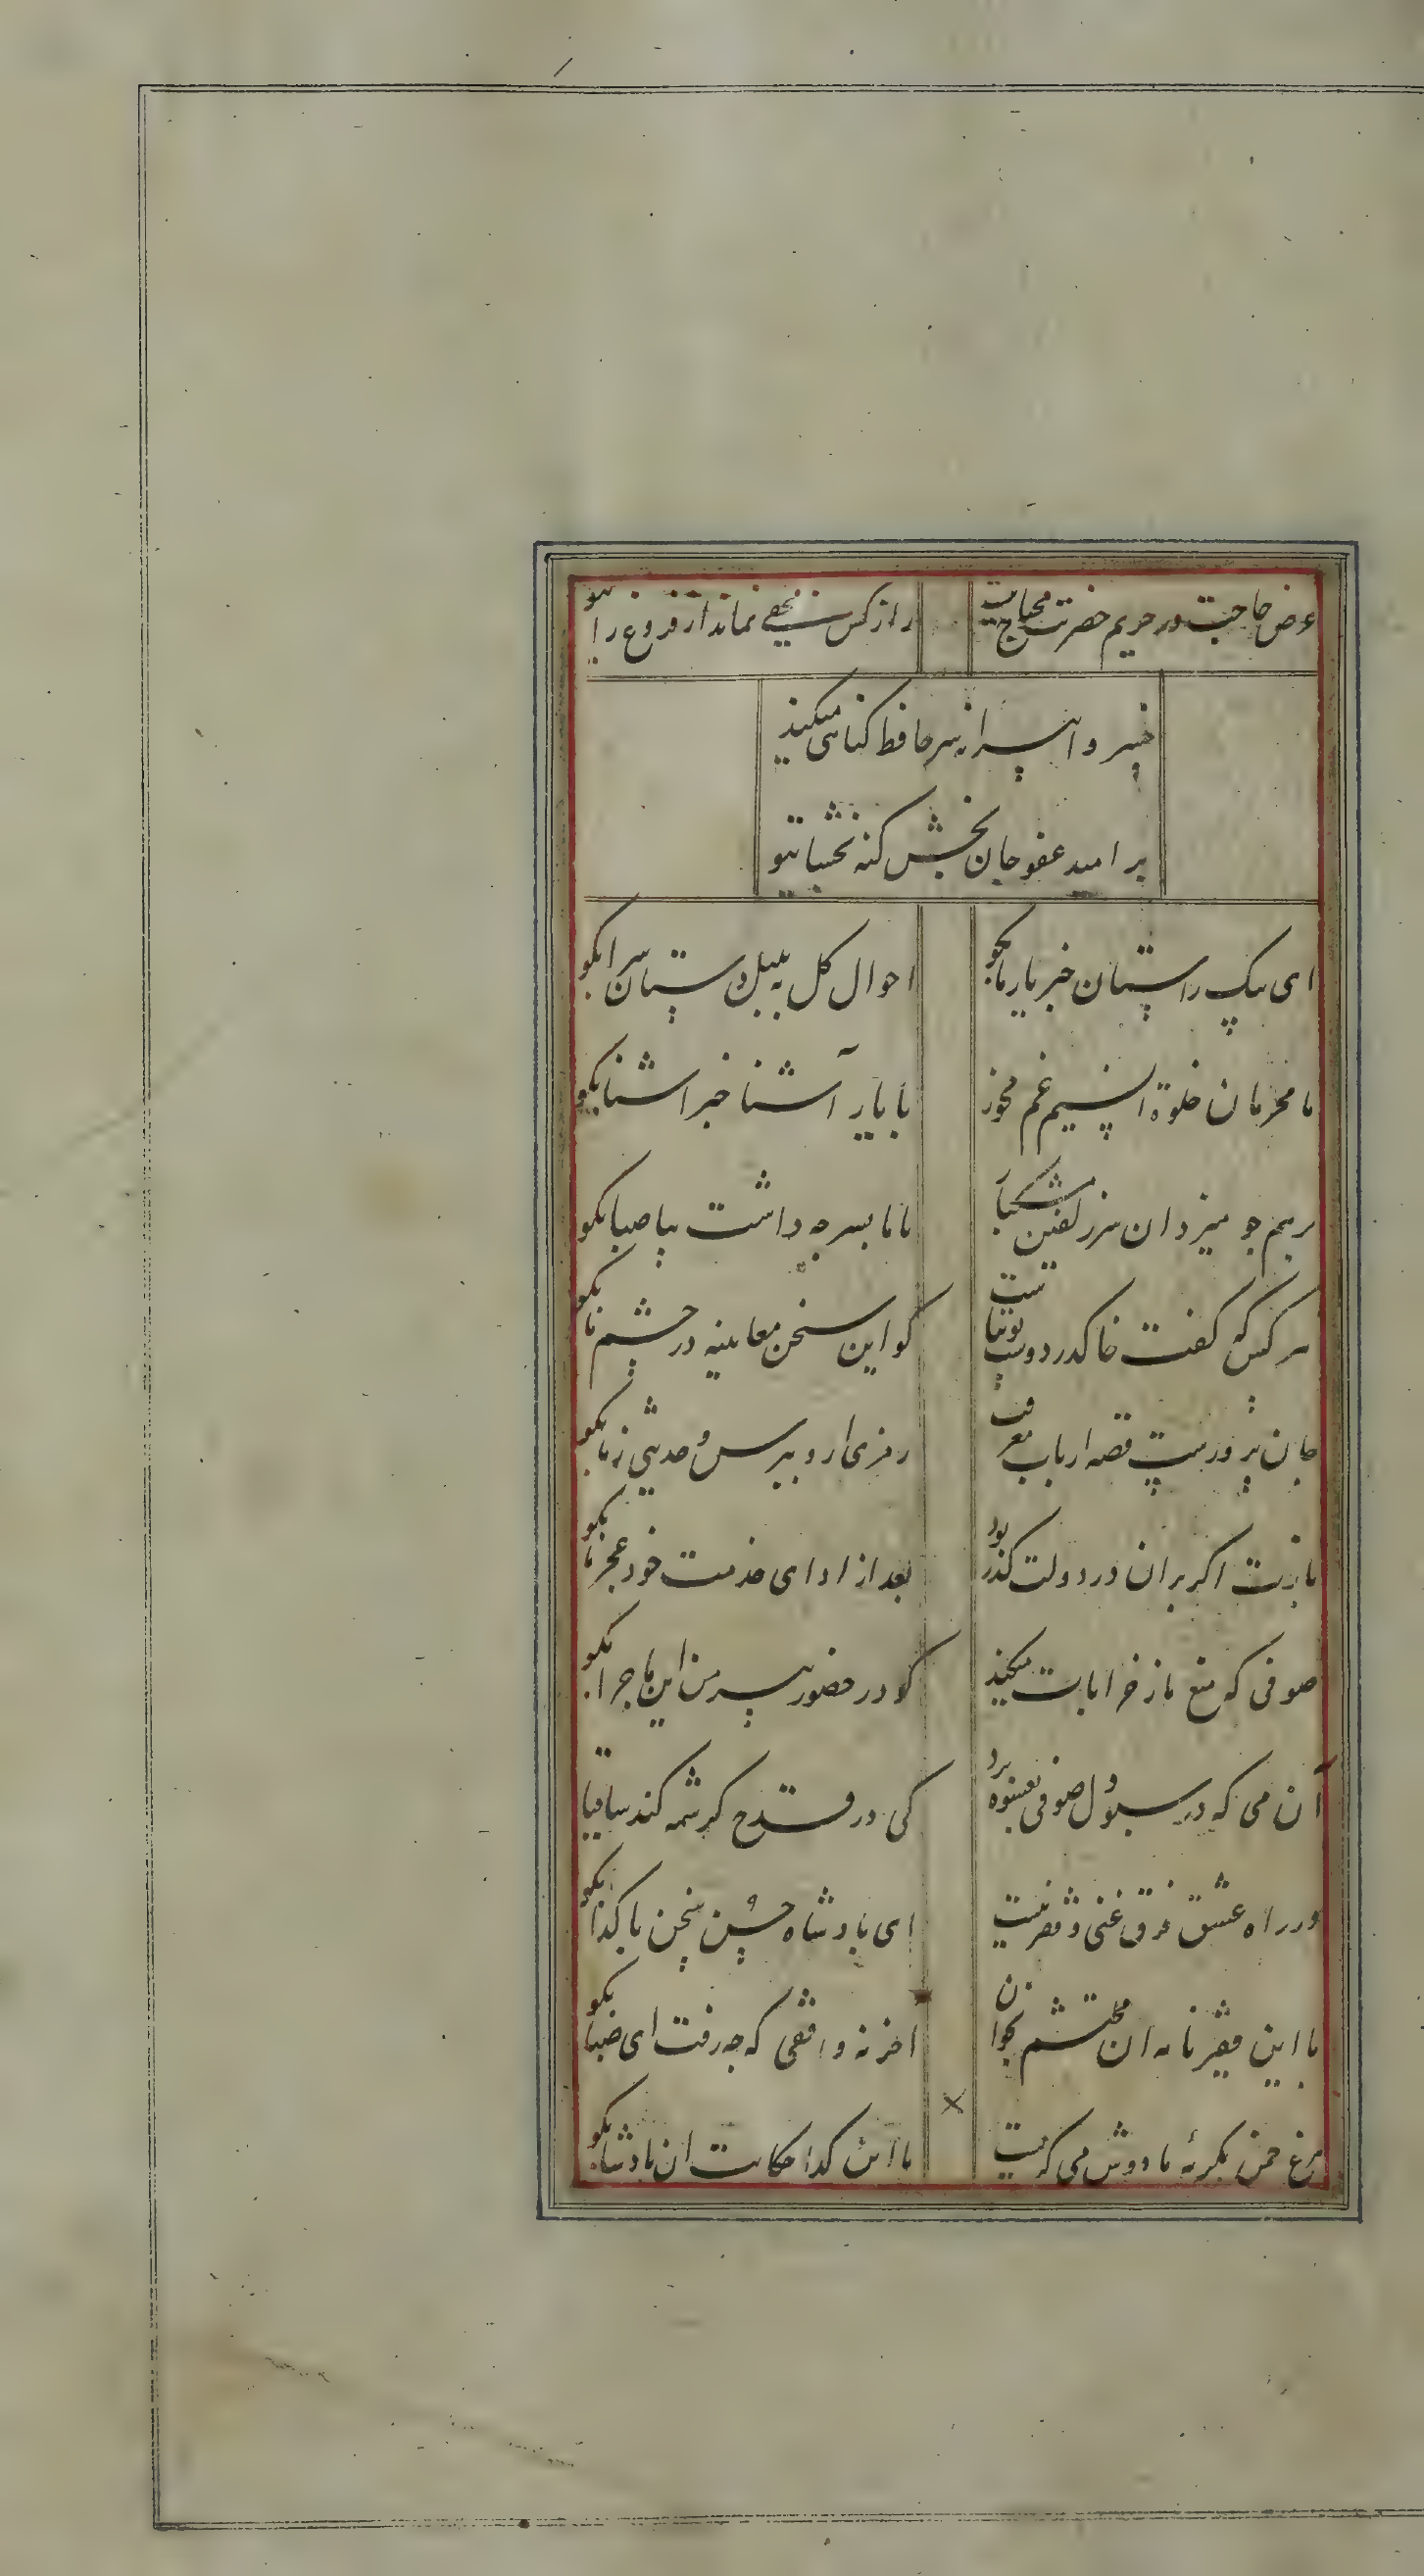 عرض حاجت در حریم حضرتت محتاج نیست
راز کس مخفی نماند از فروغ رای تو
خسروا پیرانه سر حافظ کناهی میکند
بر امید عفو جان بخش کنه بخشای تو
ای پیک راستان خبر یار ما بکو
احوال کل به بلبل دستان سرا بکو
ما محرمان خلوة انسیم غم مخور
با یار آشنا خبر اشنا بکو
برهم جو میزد ان سر زلفین مشکبار
با ما بسر جه داشت بیا صبا بکو
هر کس که کفت خاک در دوست توتیاست
کو این سخن معاینه در چشم ما بکو
جان پرورست قصه ارباب معرفت
رمزی ازو بپرس و حدیثی ز ما بکو
بازت اکر بران در دولت کذر بود
بعد از ادای خدمت خود عجز ما بکو
صوفی که منع ما ز خرابات میکند
کو در حضور پیر من این ماجرا بکو
آن می که در سبو دل صوفی بعشوه برد
کی در قدح کرشمه کند ساقیا
در راه عشق فرق غنی و فقیر نیست
ای پادشاه حسن سخن با کدا بکو
با این فقیر نامه ان محتشم بخوان
اخر نه واقفی که جه رفت ای صبا بکو
مرغ جمن بکریه ما دوش می کریست
با این کدا حکایت ان پادشا بکو